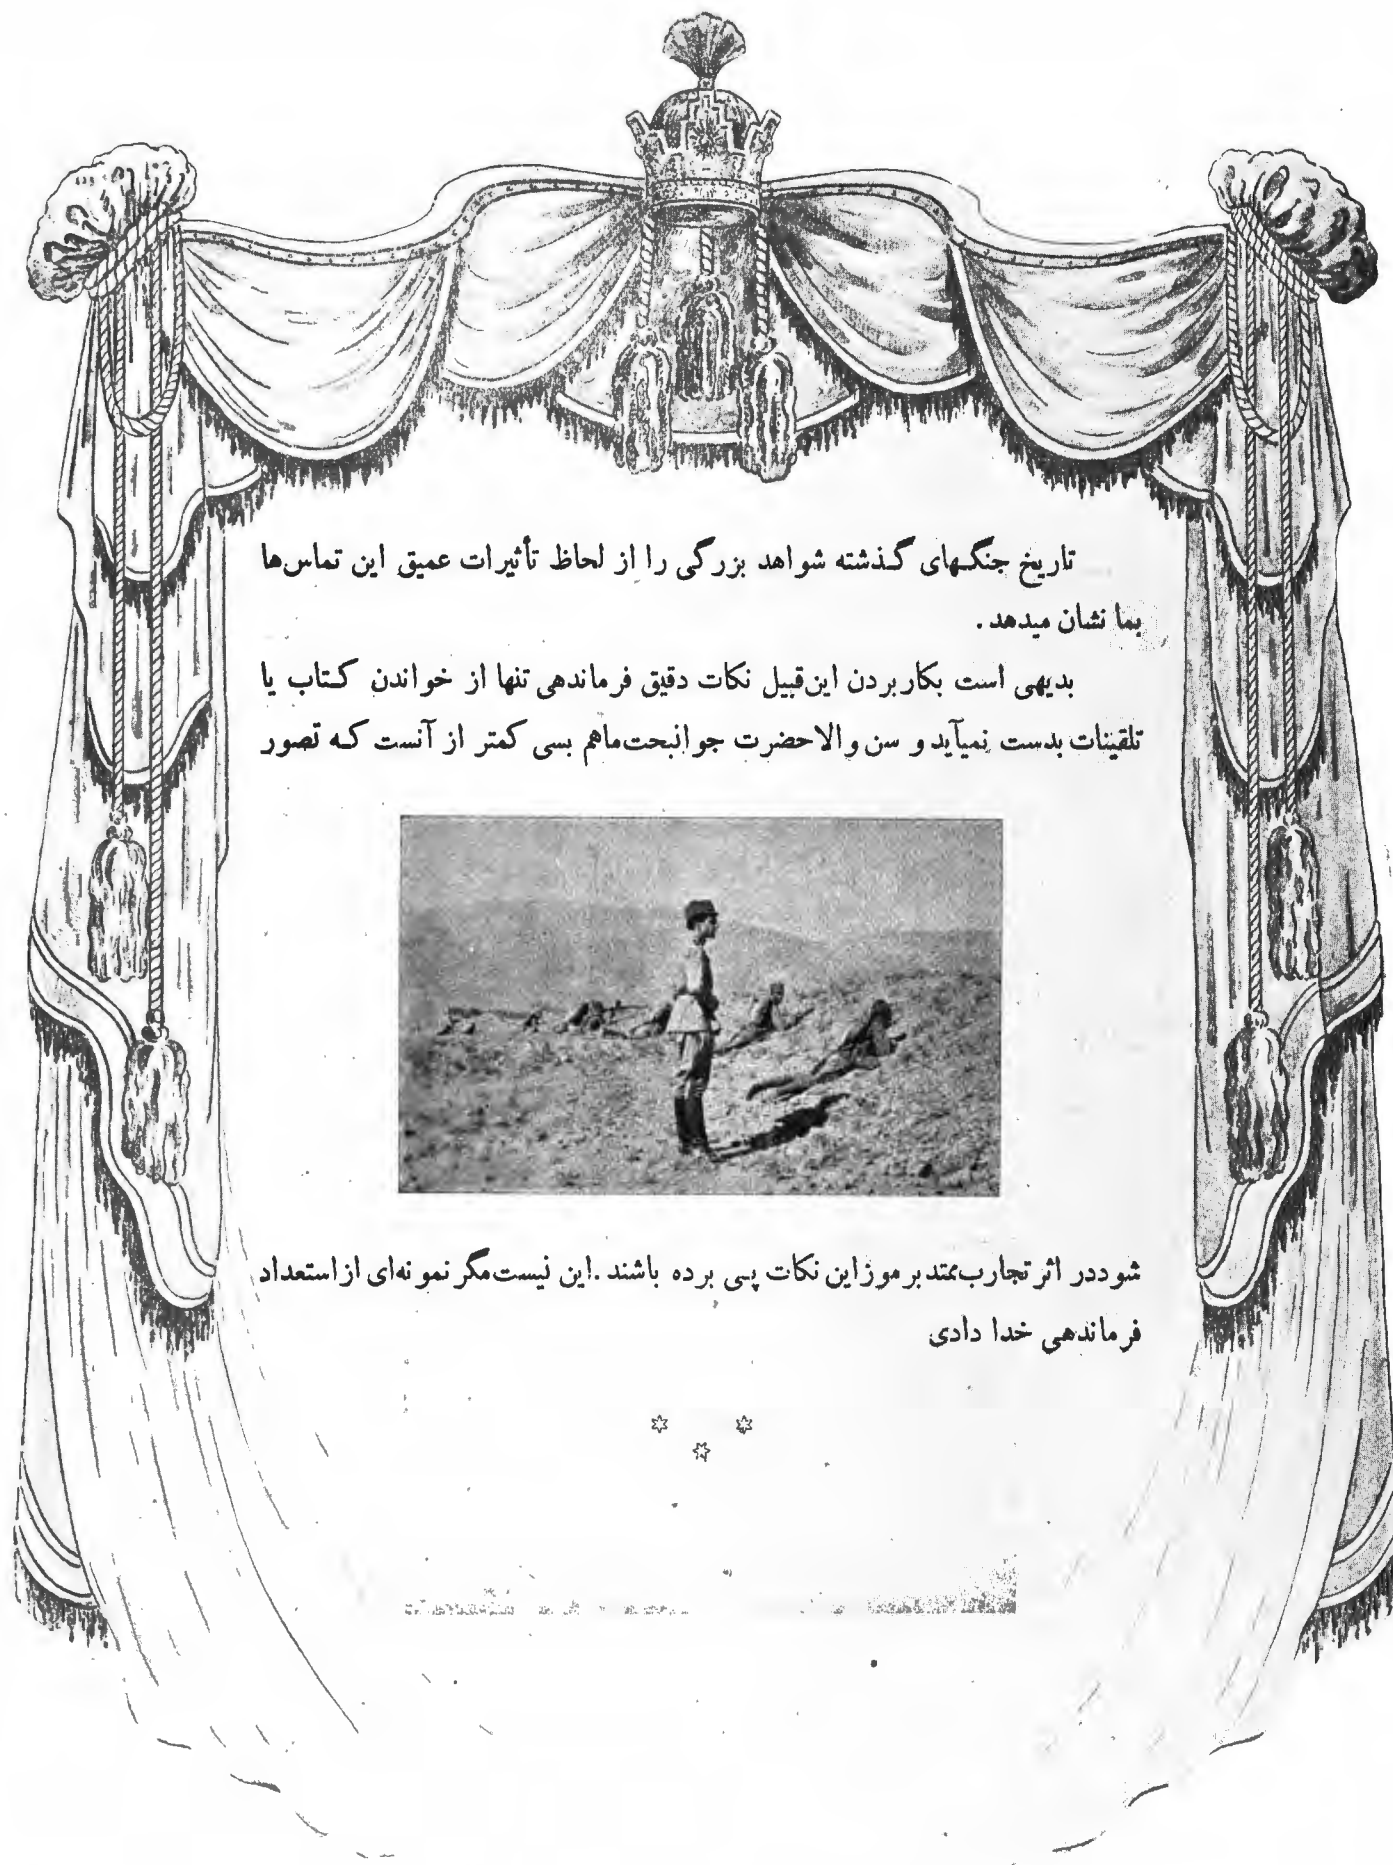 تاریخ جنگهای گذشته شواهد بزرگی را از لحاظ تأثیرات عمیق این تماس‌ها
بما نشان میدهد .
بدیهی است بکار بردن این‌قبیل نکات دقیق فرماندهی تنها از خواندن کتاب یا
تلقینات بدست نمیآید و سن والاحضرت جوانبحت‌ماهم بسی کمتر از آنست که تصور
شود در اثر تجارب ممتد بر موز این نکات پی برده باشند . این نیست مگر نمونه‌ای از استعداد
فرماندهی خدا دادی